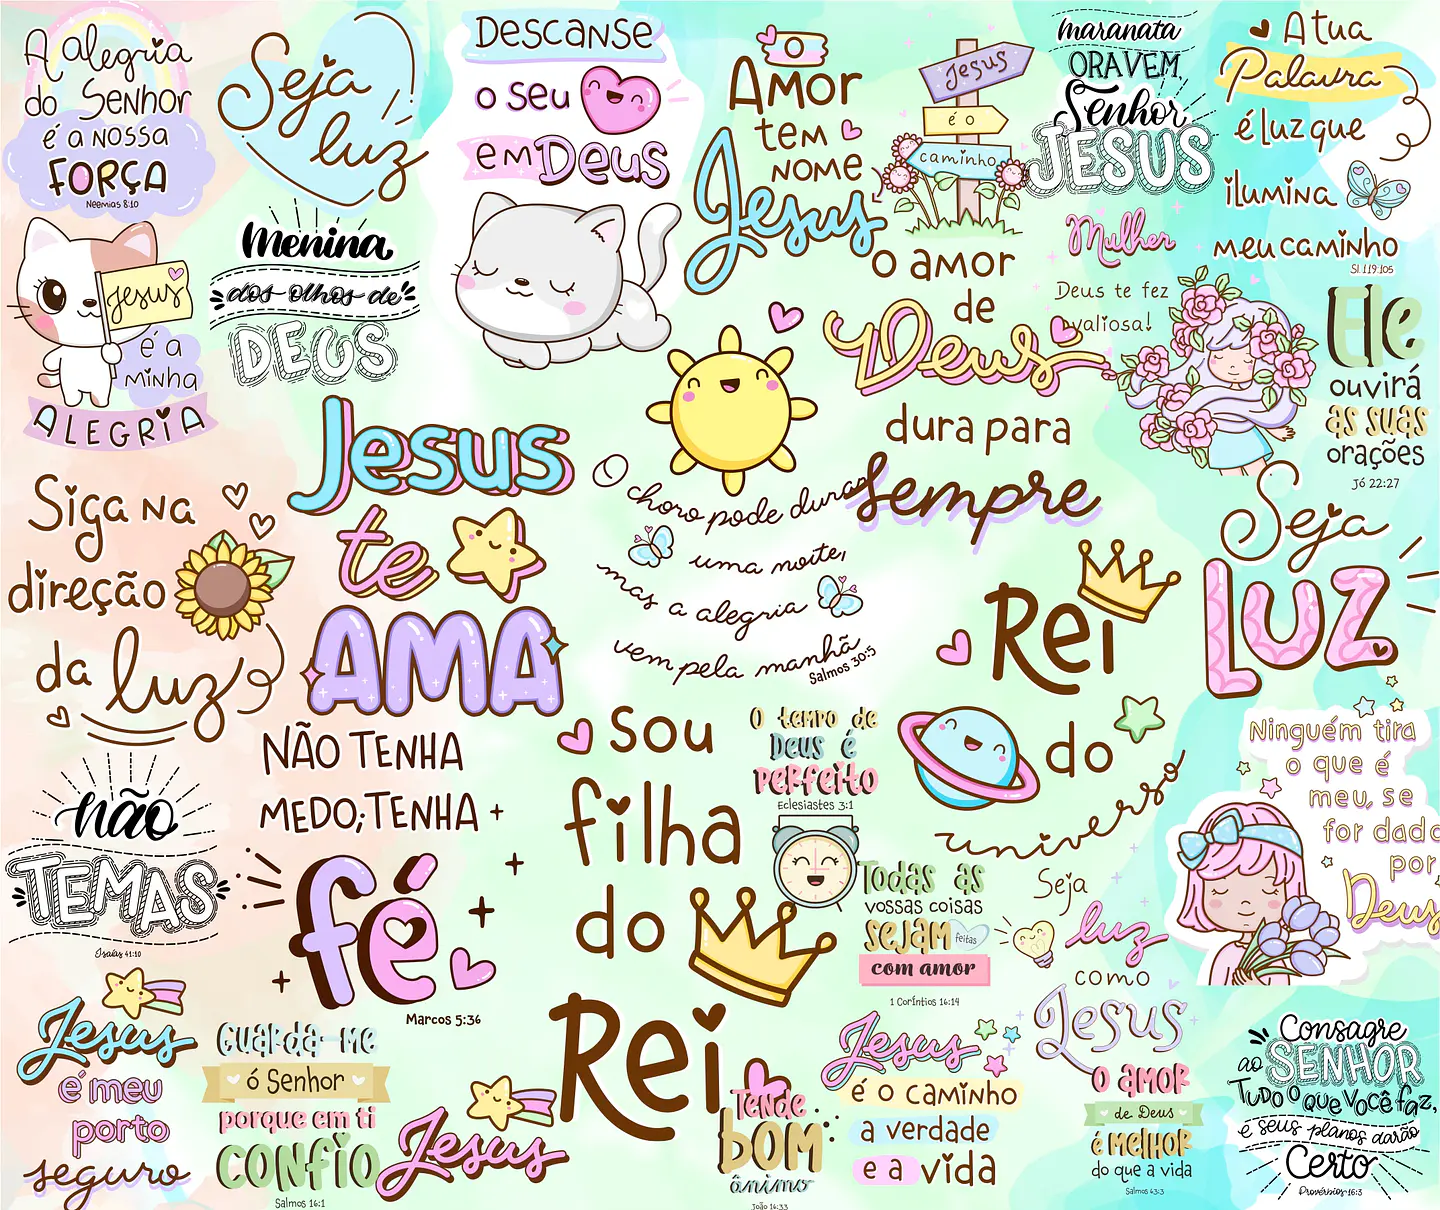 A alegria
do Senhor
é a nossa
FORÇA
Neemias 8:10
Seja
luz
Descanse
o seu
em Deus
O
Amor
tem
nome
Jesus
Jesus
é o
caminho
maranata
ORAVEM,
Senhor
JESUS
A tua
Palavra
é luz que
ilumina
meu caminho
Sl 119:105
Jesus
é a
minha
ALEGRIA
menina
dos olhos de
DEUS
o amor
de
Deus
dura para
sempre
Mulher
Deus te fez
valiosa!
Ele
ouvirá
as suas
orações
Jó 22:27
Siga na
direção
da luz
Jesus
te
AMA
O choro pode durar
uma noite,
mas a alegria
vem pela manhã
Salmos 30:5
Rei
do
universo
Seja
LUZ
não
TEMAS
Isaías 41:10
NÃO TENHA
MEDO; TENHA
fé
Marcos 5:36
sou
filha
do
Rei
O tempo de
Deus é
perfeito
Eclesiastes 3:1
Todas as
vossas coisas
sejam
feitas
com amor
1 Coríntios 16:14
Seja
luz
como
Jesus
Ninguém tira
o que é
meu, se
for dado
por
Deus
Jesus
é meu
porto
seguro
Guarda-me
ó Senhor
porque em ti
confio
Salmos 16:1
Jesus
Tende
bom
ânimo
João 16:33
Jesus
é o caminho
a verdade
e a vida
O amor
de Deus
é melhor
do que a vida
Salmos 63:3
Consagre
ao SENHOR
Tudo o que você faz,
e seus planos darão
Certo
Provérbios 16:3